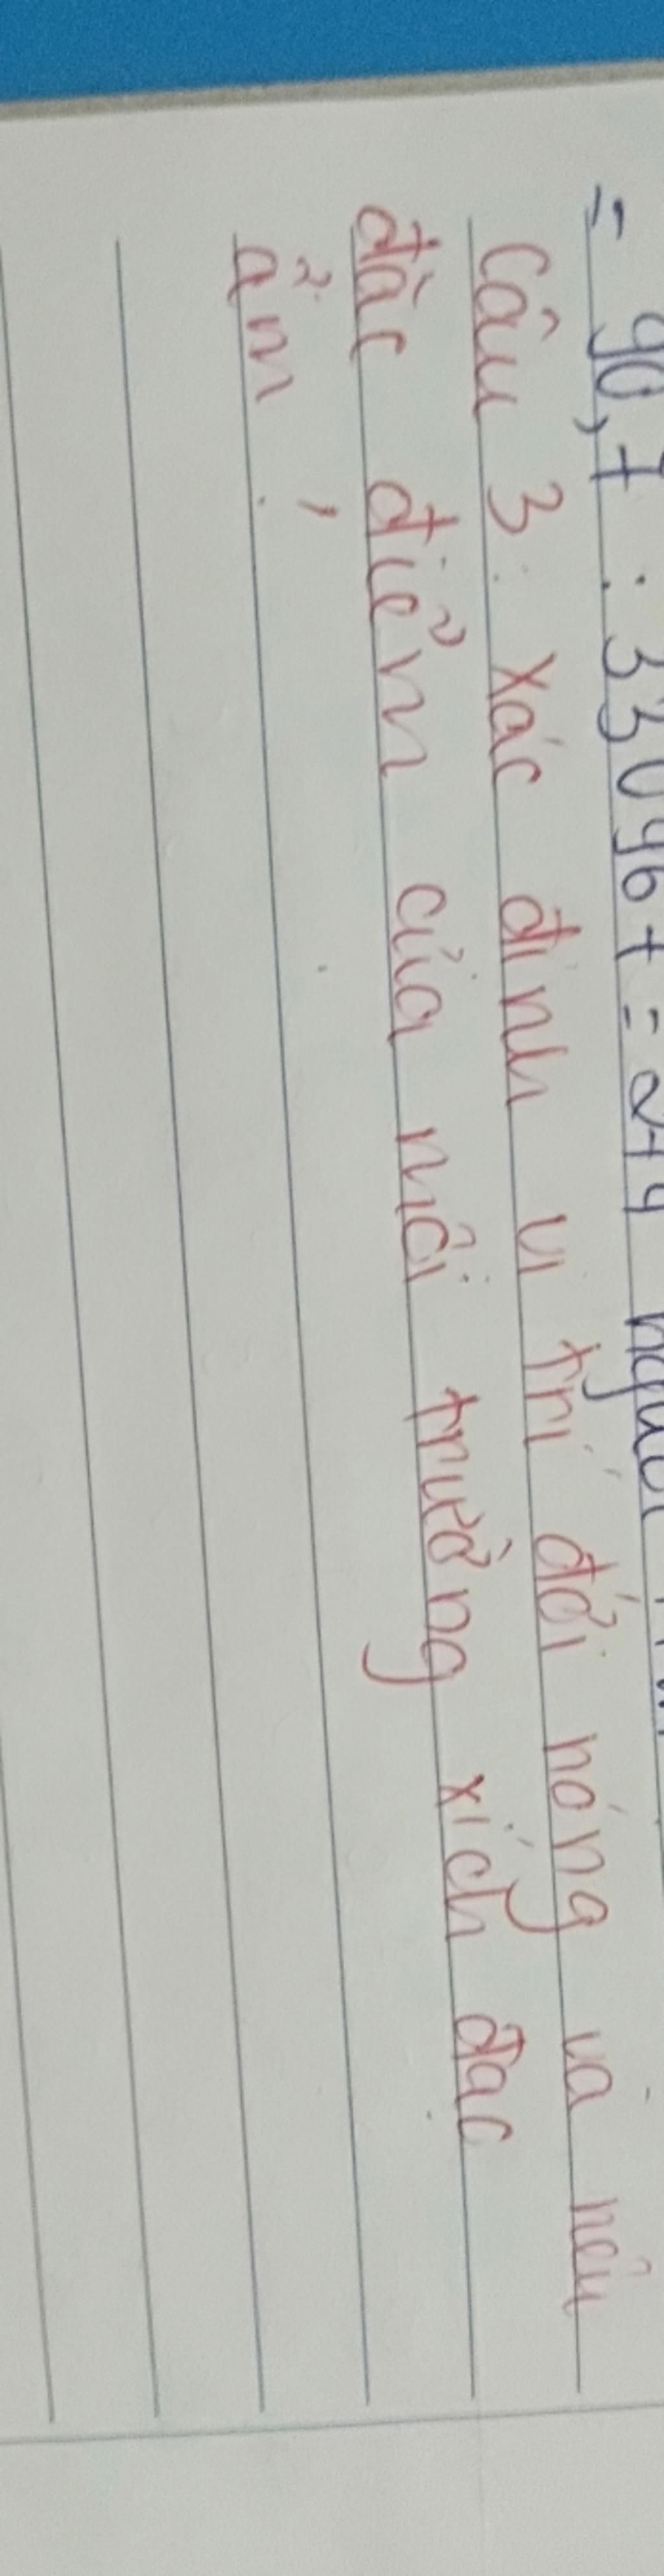 = 90,7 : 330967 = 274 người
Câu 3: xác định vị trí đới nóng và nêu
đặc điểm của môi trường xích đạo
ẩm.